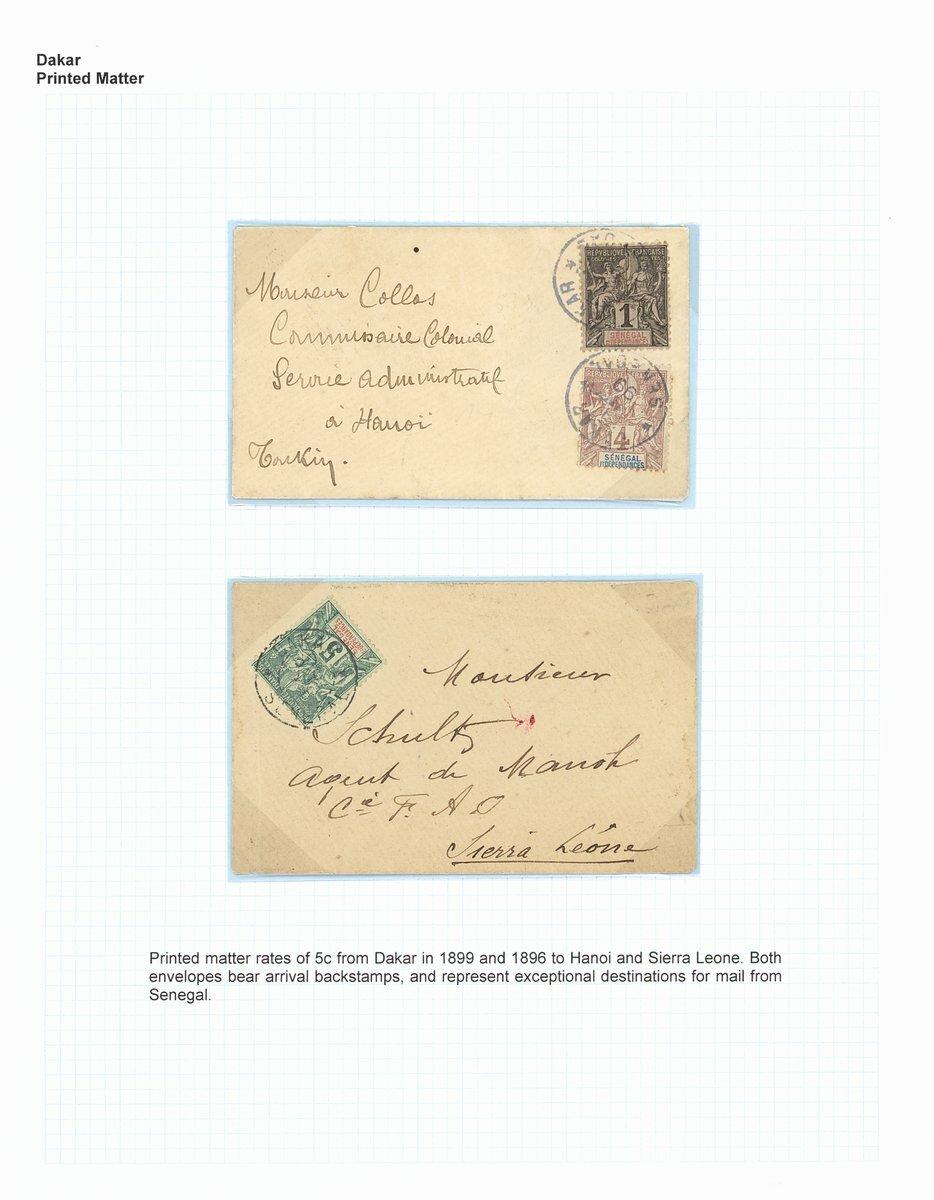 Dakar
Printed Matter
Monsieur Collas
Commissaire Colonial
Service administratif
à Hanoï
Tonkin.
REPVBLIQVE FRANÇAISE
COLONIES POSTES
1
SÉNÉGAL
ET DÉPENDANCES
REPVBLIQVE FRANÇAISE
4
SÉNÉGAL
ET DÉPENDANCES
5
SÉNÉGAL
ET DÉPENDANCES
Monsieur
Schultz
agent de Manoh
Cie F. A O
Sierra Léone
Printed matter rates of 5c from Dakar in 1899 and 1896 to Hanoi and Sierra Leone. Both
envelopes bear arrival backstamps, and represent exceptional destinations for mail from
Senegal.